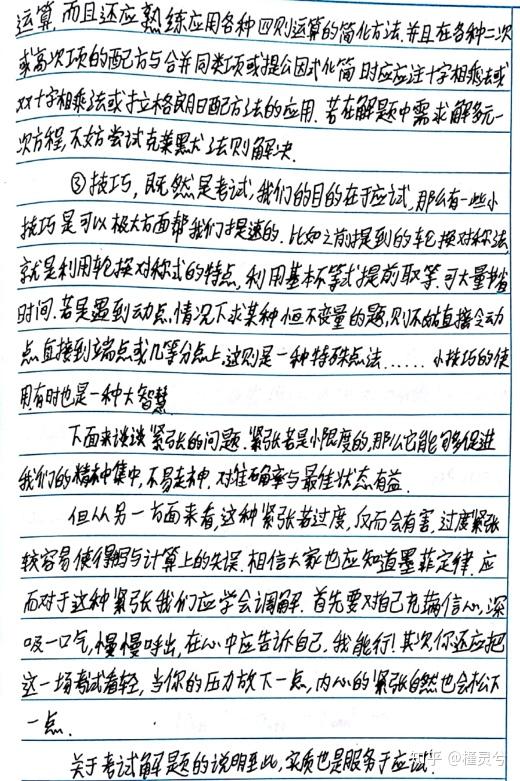 运算,而且还应熟练应用各种四则运算的简化方法.并且在各种二次
或高次项的配方与合并同类项或提公因式化简时应应注十字相乘法或
双十字相乘法或拉格朗日配方法的应用.若在解题中需求解多元一
次方程,不妨尝试克莱默法则解决.
③技巧,既然是考试,我们的目的在于应试,那么有一些小
技巧是可以极大方面帮我们提速的.比如之前提到的轮换对称法,
就是利用轮换对称式的特点,利用基本不等式提前取等.可大量节省
时间.若是遇到动点情况下求某种恒不变量的题,则不妨直接令动
点直接到端点或几等分点上,这则是一种特殊点法……小技巧的使
用有时也是一种大智慧
下面来谈谈紧张的问题.紧张若是小限度的,那么它能够促进
我们的精神集中,不易走神.对准确率与最佳状态有益.
但从另一方面来看,这种紧张若过度,反而会有害,过度紧张
较容易使得书写与计算上的失误.相信大家也应知道墨菲定律.应
而对于这种紧张我们应学会调解.首先要对自己充满信心,深
吸一口气,慢慢呼出,在心中应告诉自己,我能行!其次,你还应把
这一场考试看轻,当你的压力放下一点,内心的紧张自然也会松下
一点.
关于考试解题的说明至此,实质也是服务于应试
知乎 @槿灵兮